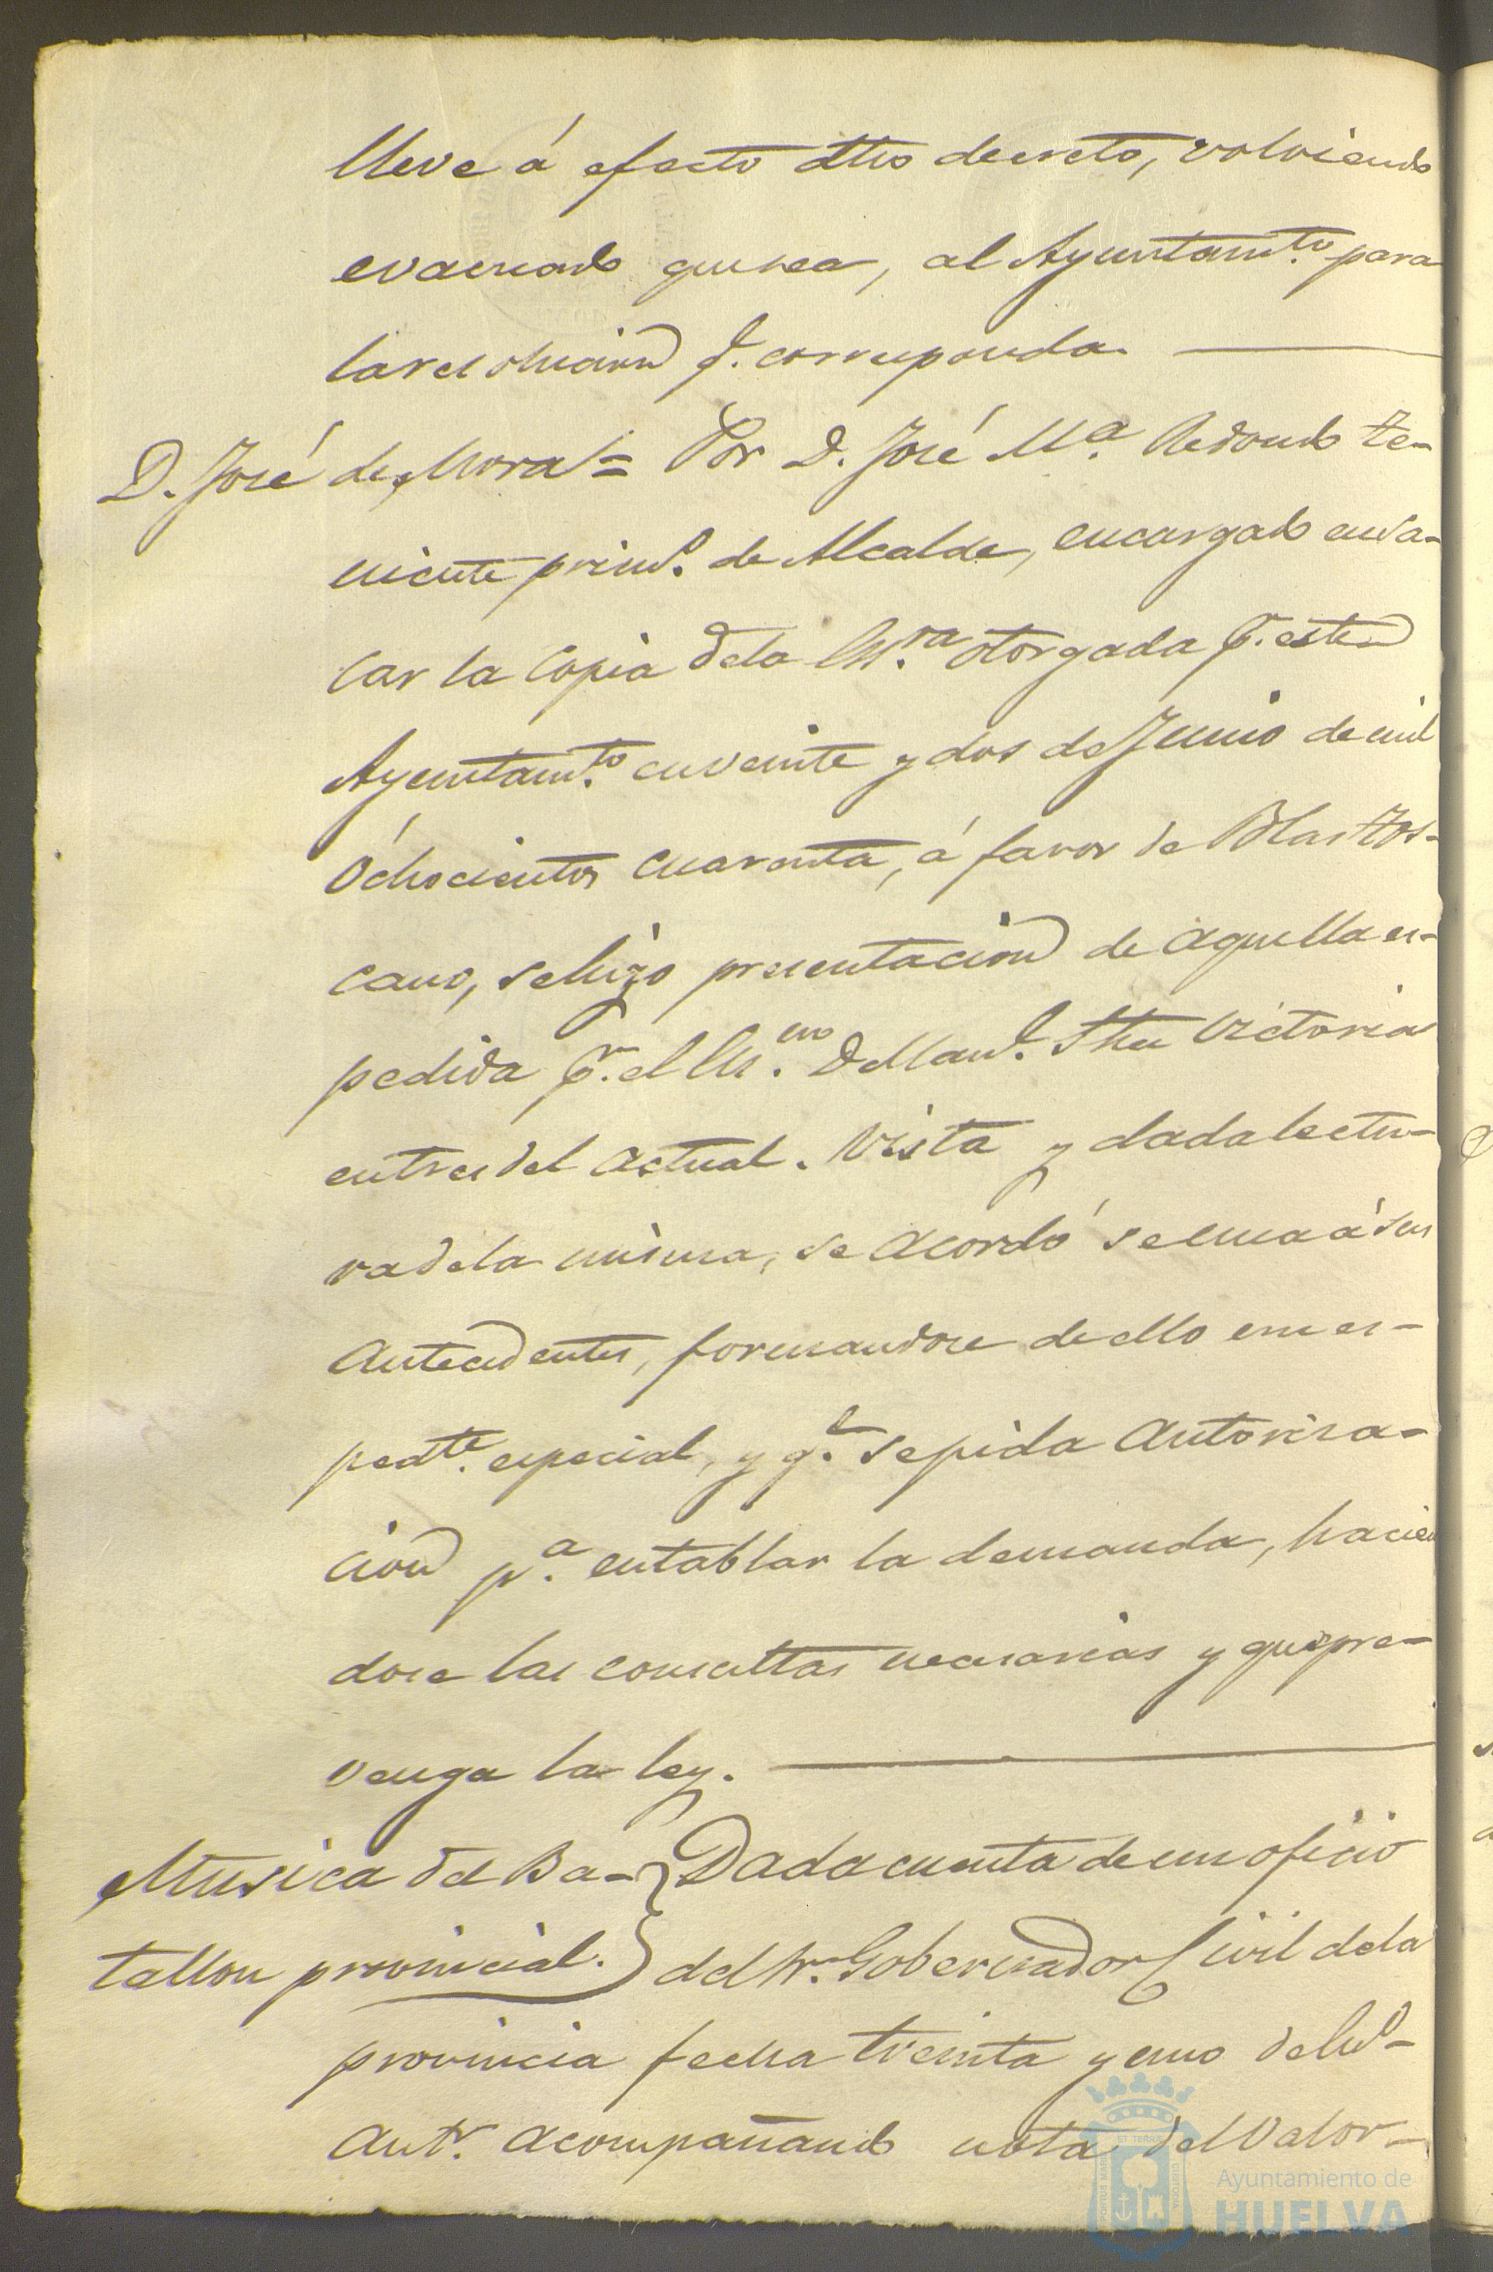 lleve á efecto dho decreto, volviendo
evacuado que sea, al Ayuntamto. para
la resolucion q. corresponda.
D. José de Mora = Por D. José Ma. Redondo te-
niente primo. de Alcalde, encargado en sa-
car la copia de la Esra. otorgada pr. este
Ayuntamto. en veinte y dos de Junio de mil
ochocientos cuarenta, á favor de Blas Tos-
cano, se hizo presentacion de aquella es-
pedida pr. el Esno. D Manl. Victoria
en tres del actual. Vista y dada lectu-
ra de la misma, se acordó se una á sus
antecedentes, formandose de ello un es-
pedte. especial, y qe. se pida autorisa-
cion pa. entablar la demanda, hacien
dose las consultas necesarias y que pre-
venga la ley.
Musica del Ba- Dada cuenta de un oficio
tallon provincial. del Sr. Gobernador Civil de la
provincia fecha treinta y uno de
antr. acompañando nota del valor
PORTUS MARIS ET TERRAE CUSTODIA
Ayuntamiento de
HUELVA